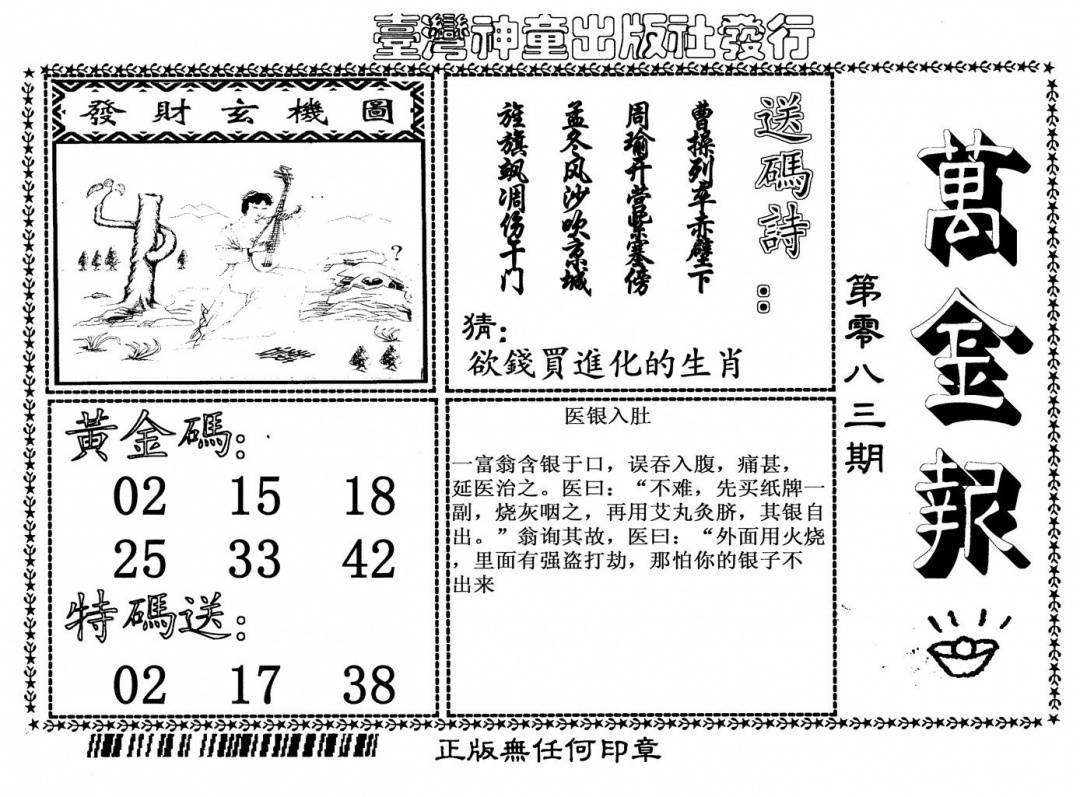 臺灣神童出版社發行
萬金報
第零八三期
發財玄機圖
?
送碼詩:
曹操列车赤壁下
周瑜开营紫塞傍
孟冬风沙吹京城
旌旗飒凋伤千门
猜:
欲錢買進化的生肖
黃金碼:
02 15 18
25 33 42
特碼送:
02 17 38
医银入肚
一富翁含银于口，误吞入腹，痛甚，
延医治之。医曰：“不难，先买纸牌一
副，烧灰咽之，再用艾丸灸脐，其银自
出。”翁询其故，医曰：“外面用火烧
，里面有强盗打劫，那怕你的银子不
出来
正版無任何印章